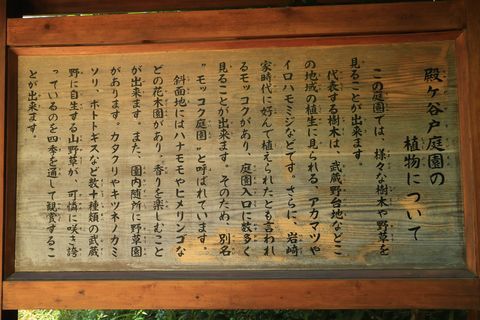 殿ヶ谷戸庭園の
植物について
この庭園では、様々な樹木や野草を
見ることが出来ます。
代表する樹木は、武蔵野台地などこ
の地域の植生に見られる、アカマツや
イロハモミジなどです。さらに、岩崎
家時代に好んで植えられたとも言われ
るモッコクがあり、庭園入口に数多く
見ることが出来ます。そのため、別名
〝モッコク庭園〟と呼ばれています。
斜面地にはハナモモやヒメリンゴな
どの花木園があり、香りを楽しむこと
が出来ます。また、園内随所に野草園
があります。カタクリやキツネノカミ
ソリ、ホトトギスなど数十種類の武蔵
野に自生する山野草が、可憐に咲き誇
っているのを四季を通して観賞するこ
とが出来ます。